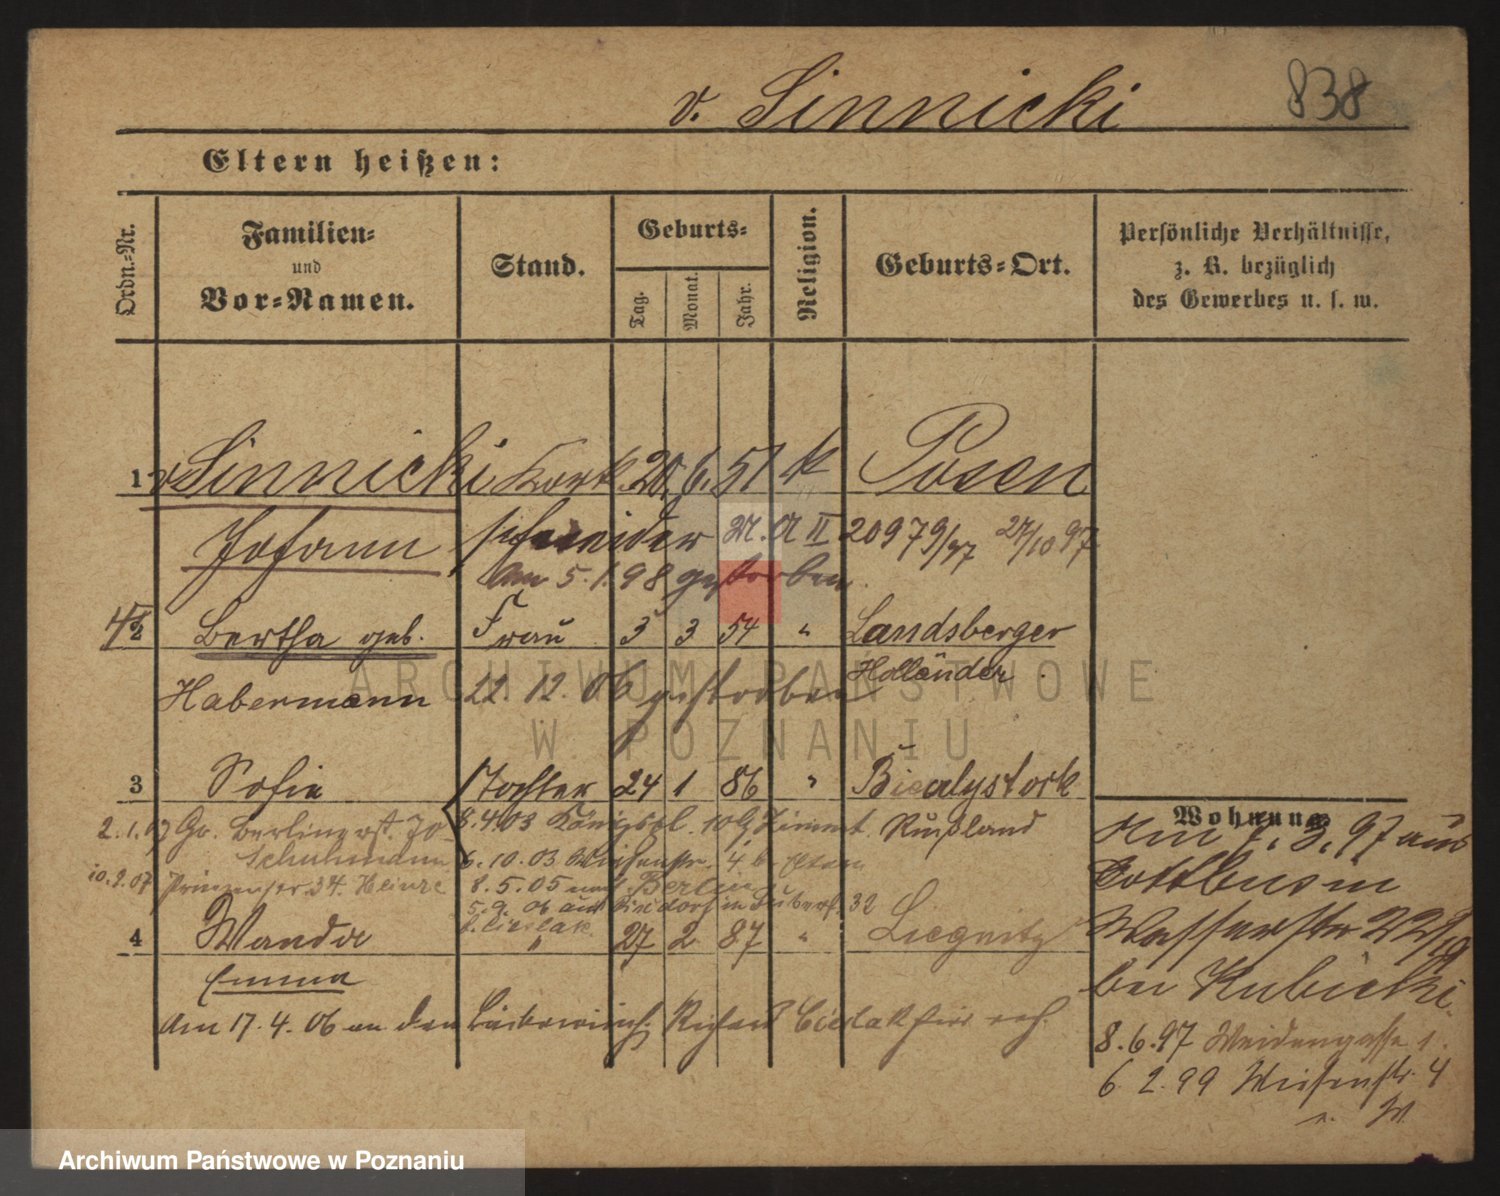 838
v. Sinnicki
Eltern heißen:
Ordn.-Nr.
Familien-
und
Vor-Namen.
Stand.
Geburts-
Tag.
Monat.
Jahr.
Religion.
Geburts-Ort.
Persönliche Verhältnisse,
z. B. bezüglich
des Gewerbes u. s. w.
1 v Sinnicki Kork 20. 6. 51 k Posen
Johann schneider M. A II 20979/97 27/10 97
am 5. 1. 98 gestorben.
2 Bertha geb. Frau 3 3 54 " Landsberger
Habermann 22. 12. 06 gestorben Holländer.
3 Sofie Tochter 24 1 86 " Bialystok
2. 1. 07 Gr. Berlinerst. 70 8.4.03 Königspl. 10 Russland
Schuhmann 6. 10. 03 Wiesenstr. 4
10. 2. 07 Prinzenstr. 34. Heinze 8. 5. 05 nach Berlin
5. 9. 06 aus 32
Cieslak
4 Wanda " 27 2 87 " Liegnitz
Emma
Am 17. 4. 06 an den Richard Cieslak
Wohnung
Am 1. 3. 97 aus
Cottbus in
Wasserstr 22
bei Kubicki.
8. 6. 97 Weidengasse 1.
6. 2. 99 Wiesenstr. 4
ARCHIWUM PAŃSTWOWE
W POZNANIU
Archiwum Państwowe w Poznaniu